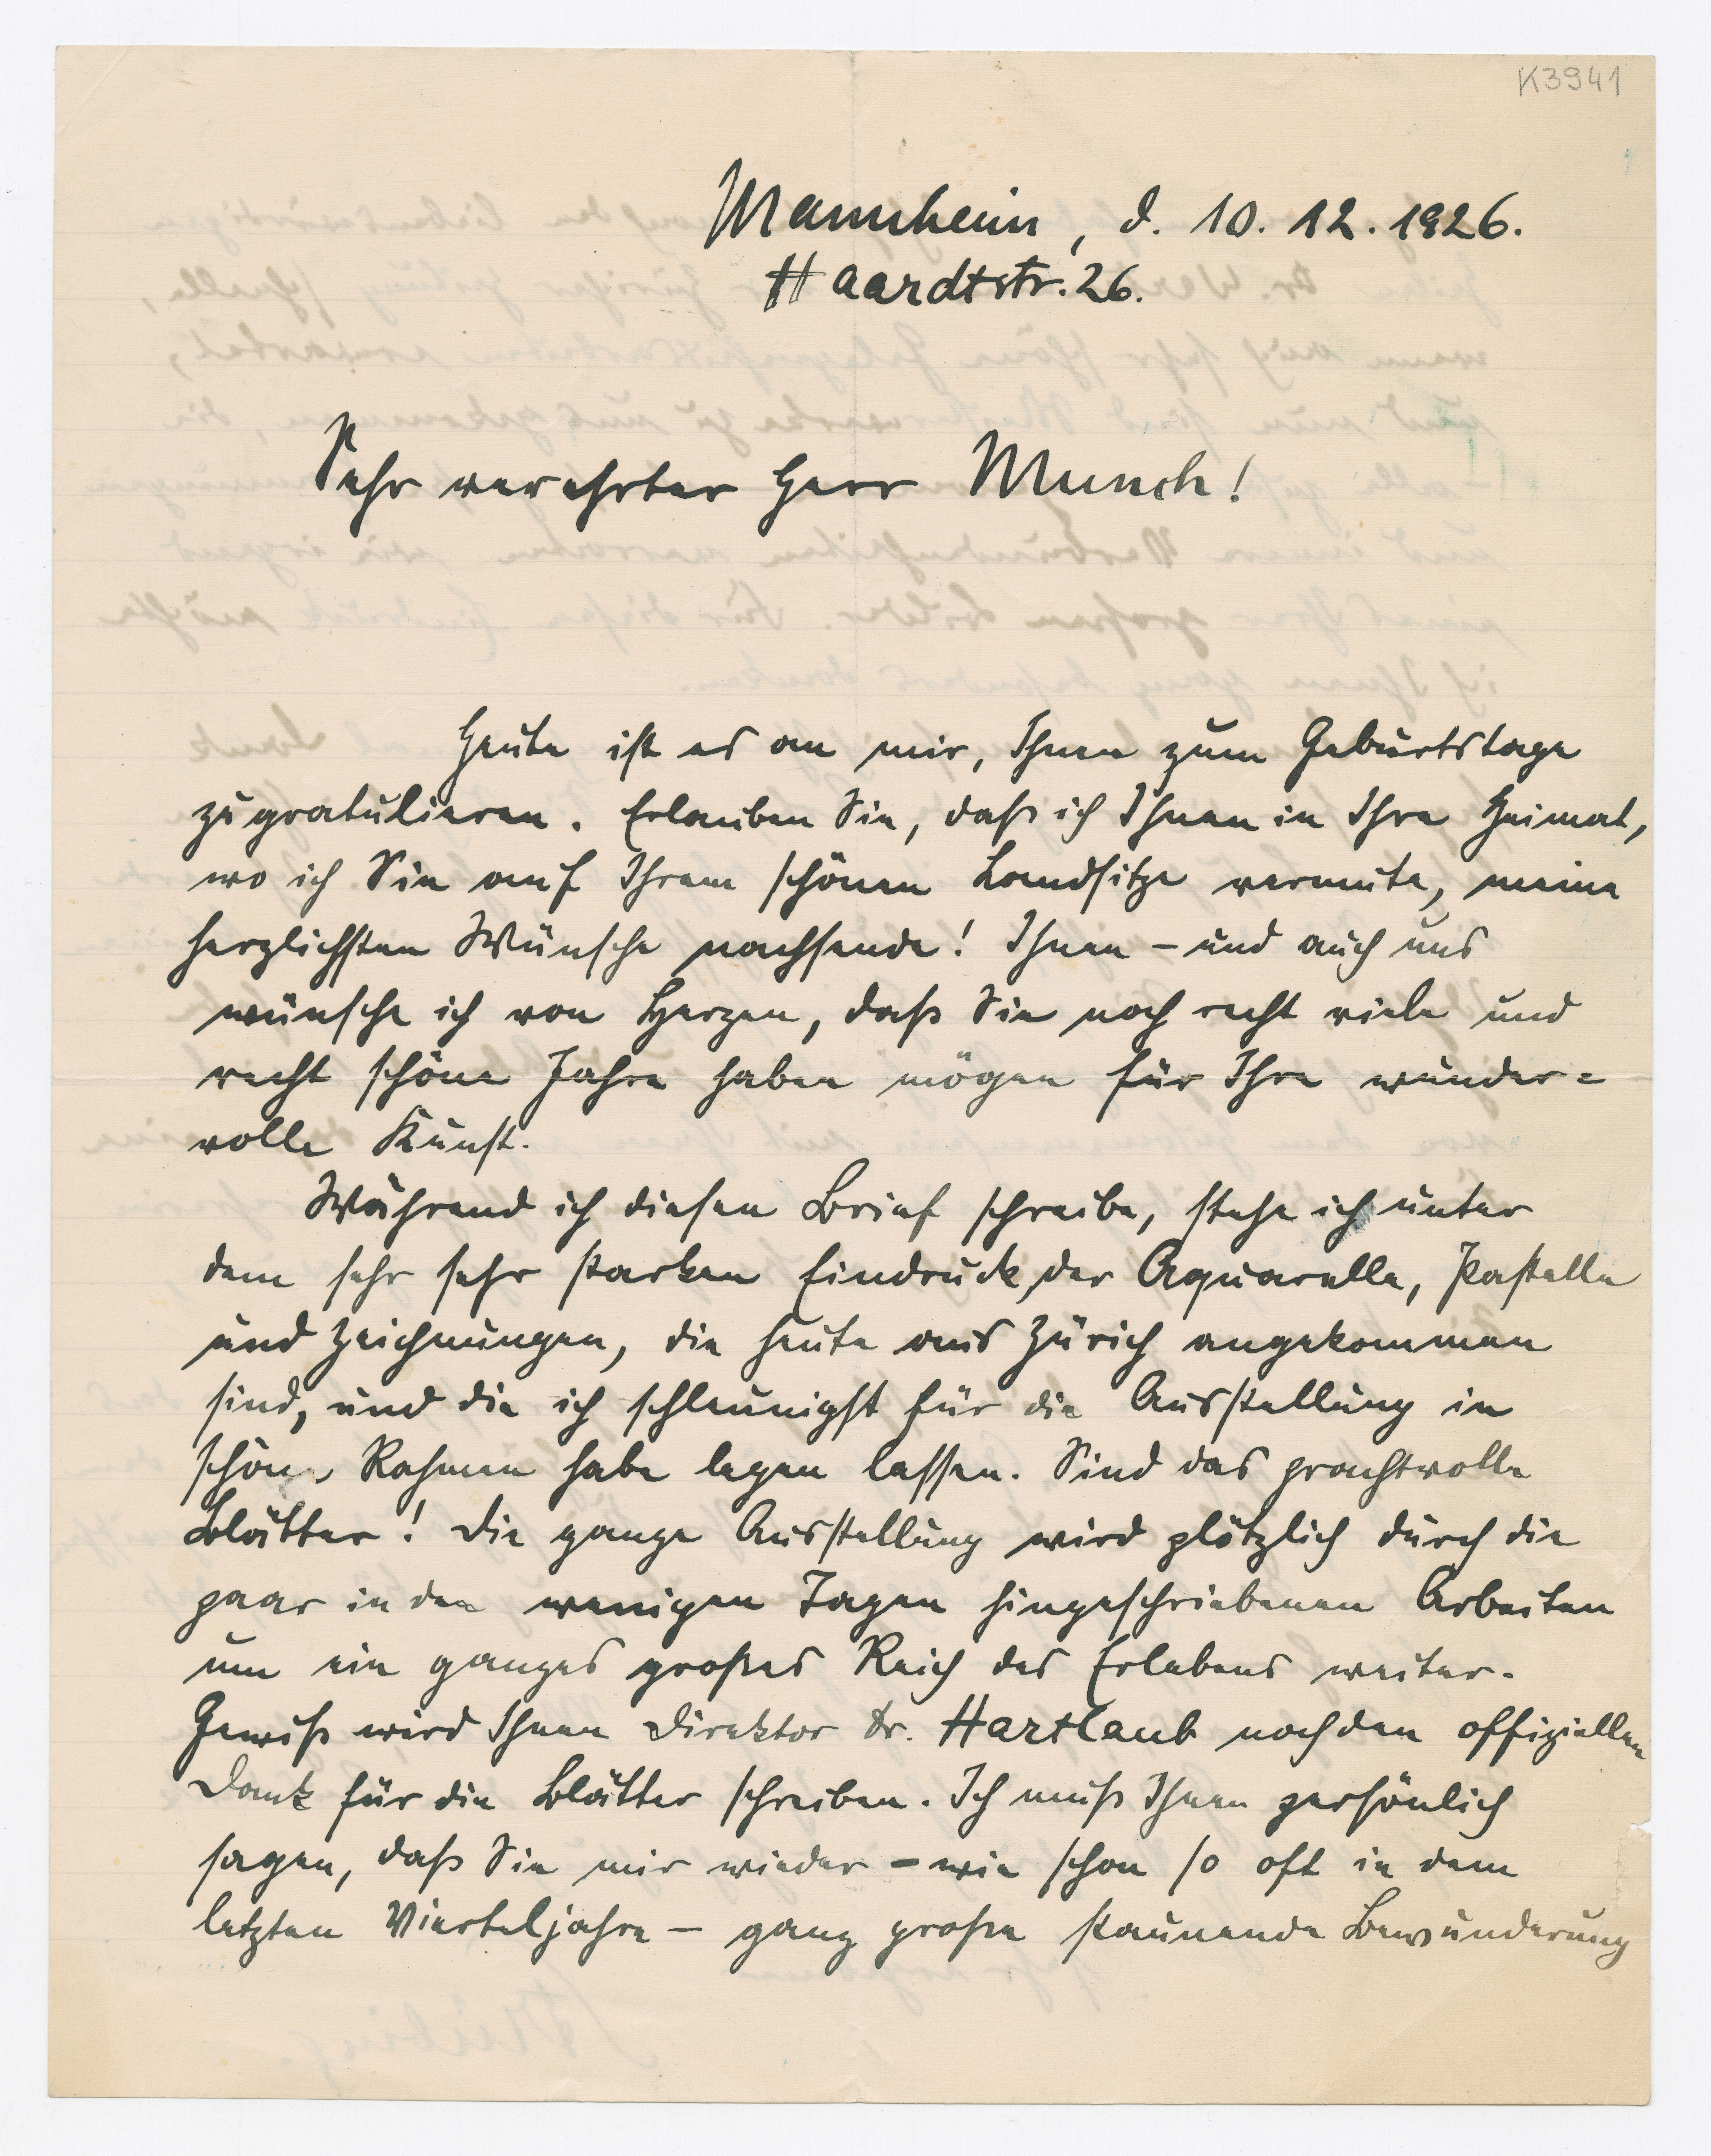 K3941
Mannheim, d. 10. 12. 1926.
Haardtstr. 26.
Sehr verehrter Herr Munch!
Heute ist es an mir, Ihnen zum Geburtstage
zu gratulieren. Erlauben Sie, daß ich Ihnen in Ihre Heimat,
wo ich Sie auf Ihrem schönen Landsitze vermute, meine
herzlichsten Wünsche nachsende! Ihnen – und auch uns
wünsche ich von Herzen, daß Sie noch recht viele und
recht schöne Jahre haben mögen für Ihre wunder=
volle Kunst.
Während ich diesen Brief schreibe, stehe ich unter
dem sehr sehr starken Eindruck der Aquarelle, Pastelle
und Zeichnungen, die heute aus Zürich angekommen
sind, und die ich schleunigst für die Ausstellung in
schöne Rahmen habe legen lassen. Sind das prachtvolle
Blätter! Die ganze Ausstellung wird plötzlich durch die
paar in den wenigen Tagen hingeschriebenen Arbeiten
um ein ganzes großes Reich des Erlebens weiter.
Gewiß wird Ihnen Direktor Dr. Hartlaub noch den offiziellen
Dank für die Blätter schreiben. Ich muß Ihnen persönlich
sagen, daß Sie mir wieder – wie schon so oft in dem
letzten Vierteljahre – ganz große staunende Bewunderung